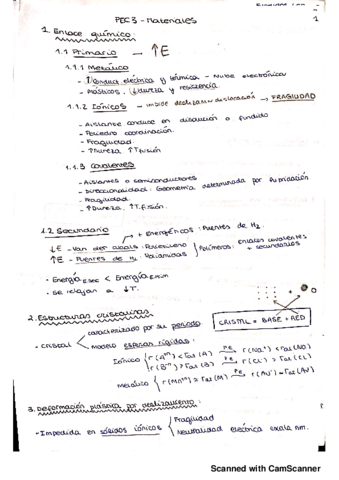 PEC 3 - Materiales
1
1. Enlace químico:
1.1 Primario → ↑E
1.1.1 Metálico
- ↑Conduct. eléctrica y térmica - Nube electrónica
- Plásticos. ↓dureza y resistencia.
1.1.2 Iónicos → → FRAGILIDAD
- Aislante conduce en disolución o fundido
- Poliedro coordinación.
- Fragilidad.
- ↑Dureza ↑Tfusión
1.1.3 Covalentes
- Aislantes o semiconductores
- Direccionalidad: Geometría determinada por hibridación
- Fragilidad
- ↑Dureza. ↑T.fusión.
1.2 Secundario + Energéticos: Puentes de H2.
↓E - Van der Waals
↑E - Puentes de H2 - Poliamidas } Polímeros: Enlaces covalentes + secundarios
- Energía Esec < Energía Eprim
- Se relajan a ↓T.
2. Estructuras cristalinas
CRISTAL = BASE + RED
- Cristal { caracterizado por su periodo
modelo esferas rígidas:
Iónico { r(Aⁿ⁺) < rat(A) → r(Na⁺) < rat(Na)
r(Bⁿ⁻) > rat(B) → r(Cl⁻) > rat(Cl)
metálico { r(Mⁿ⁺) = rat(M) → r(Au) = rat(Au)
3. Deformación plástica por deslizamiento:
- Impedida en sólidos iónicos { Fragilidad
Neutralidad eléctrica
Scanned with CamScanner